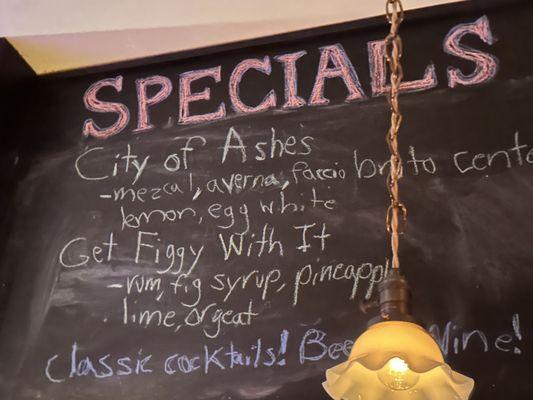 SPECIALS
City of Ashes
- mezcal, averna, faccio bruto cento
lemon, egg white
Get Figgy With It
- rum, fig syrup, pineapp
lime, orgeat
Classic cocktails! Bee Wine!